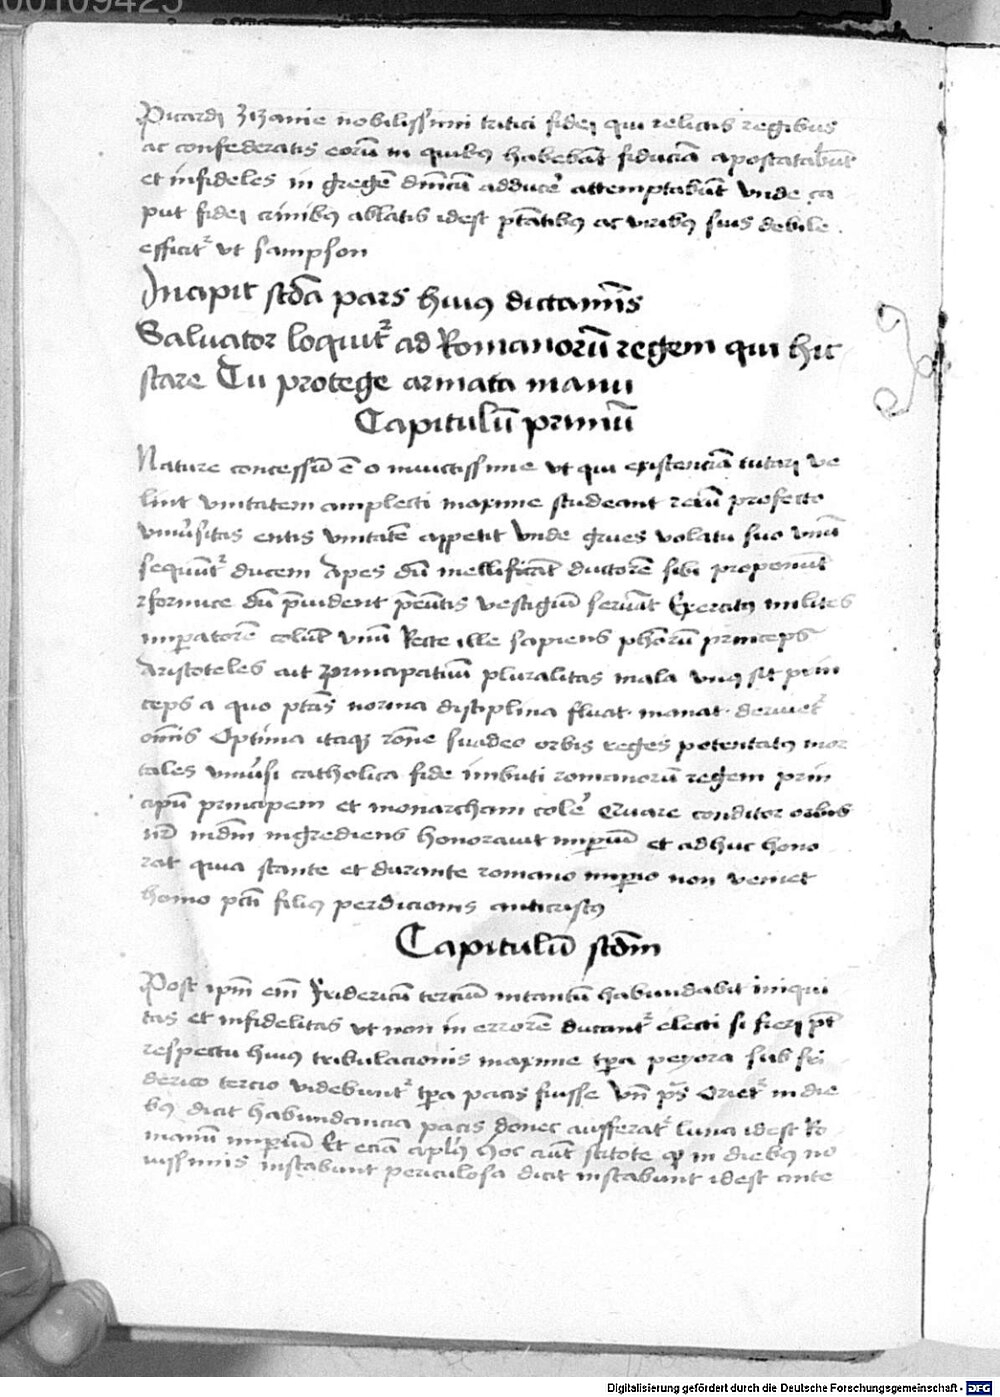 00109425
Picardj zizanie nobilissimi tritici fidej qui relictis regibus
ac confederatis eorū in quibꝯ habebāt fiduciā apostatabūt
et infideles in gregē dn̄icū adducē attemptabūt vnde ca
put fidej crinibꝯ ablatis idest ptātibꝯ ac viribꝯ suis debile
efficitᵣ vt sampson
Incipit scdā pars huiꝯ dictaminis
Saluator loquitᵣ ad Romanorū regem qui hic
stare Tu protege armata manu
Capitulū primū
Nature concessū ē o inuictissime vt qui existenciā tutarj ve
lint vnitatem amplecti maxime studeant rerū profecto
vniūsitas entis vnitatē appetit vnde grues volatu suo vnū
sequūtᵣ ducem Apes dū mellificāt ductorē sibi proponūt
et formice dū p̄uident p̄eūtis vestigiū seruāt Exercitꝯ milites
imꝑatorē colūt vnū Recte ille sapiens phōrū princeps
Aristoteles ait principatuū pluralitas mala vnꝯ sit prin
ceps a quo ptās norma disciplina fluat manat deriuetᵣ
om̄is Optima itaqꝫ rōne suadeo orbis reges potentatꝯ mor
tales vniūsi catholica fide imbuti romanorū regem prin
cipū principem et monarcham colē Quare conditor orbis
in mūdū ingrediens honorauit imꝑiū et adhuc hono
rat quia stante et durante romano imꝑio non veniet
homo pctī filiꝯ perdicionis anticristꝯ
Capitulū scdm̄
Post ip̄m em̄ Fridericū terciū intantū habundabit iniqui
tas et infidelitas vt non in errorē ducantᵣ electi si fierj pt̄
respectu huiꝯ tribulacionis maxime tꝑa peyora sub fri
derico tercio videbuntᵣ tꝑa pacis fuisse Vn̄ ps̄ Orietᵣ in die
bꝯ dicit habundancia pacis donec aufferatᵣ luna idest Ro
manū imꝑiū Et eciā aplūs hoc aiūt scitote ꝙ in diebꝯ no
uissimis instabunt periculosa dicit instabunt idest ante
Digitalisierung gefördert durch die Deutsche Forschungsgemeinschaft - DFG